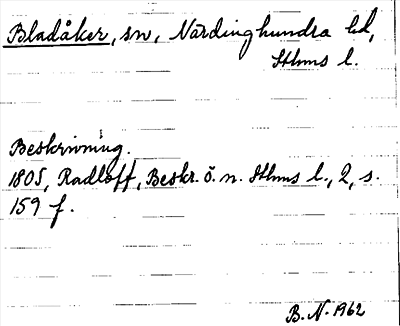 Bladåker, sn, Närdinghundra hd,
Sthms l.
Beskrivning.
1805, Radloff, Beskr. ö. n. Sthms l., 2, s.
159 f.
B. N. 1962